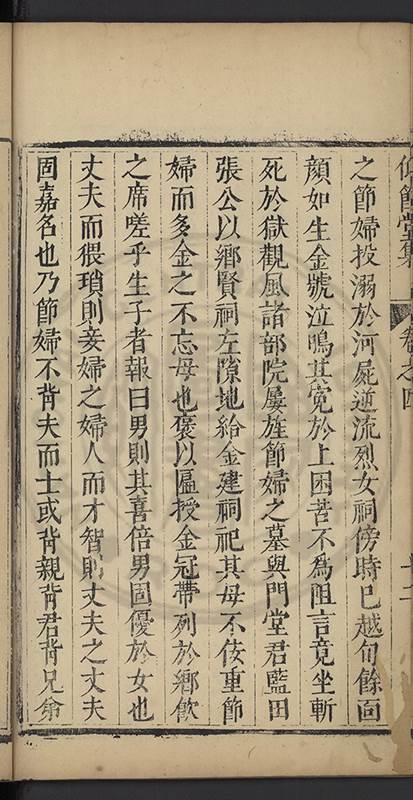 仰節堂集
卷之四
之節婦投溺於河屍逆流烈女祠傍時已越旬餘面
顔如生金號泣鳴其寃於上困苦不爲阻言竟坐斬
死於獄觀風諸部院屢旌節婦之墓與門堂君藍田
張公以鄉賢祠左隙地給金建祠祀其母不佞重節
婦而多金之不忘母也褒以匾授金冠帶列於鄉飲
之席嗟乎生子者報曰男則其喜倍男固優於女也
丈夫而猥瑣則妾婦之婦人而才智則丈夫之丈夫
固嘉名也乃節婦不背夫而士或背親背君背兄弟